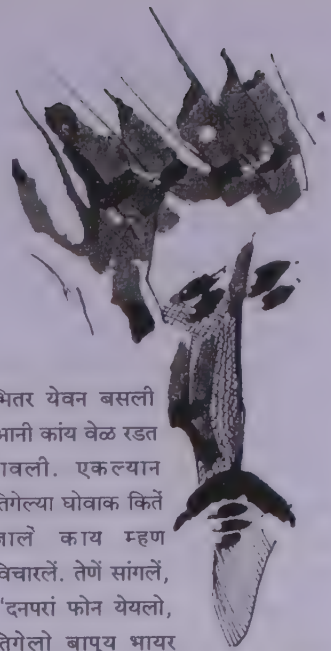 भितर येवन बसली
आनी कांय वेळ रडत
रावली. एकल्यान
तिगेल्या घोवाक कितें
जालें काय म्हण
विचारलें. तेणें सांगलें,
"दनपरां फोन येयलो,
तिगेलो बापुय भायर